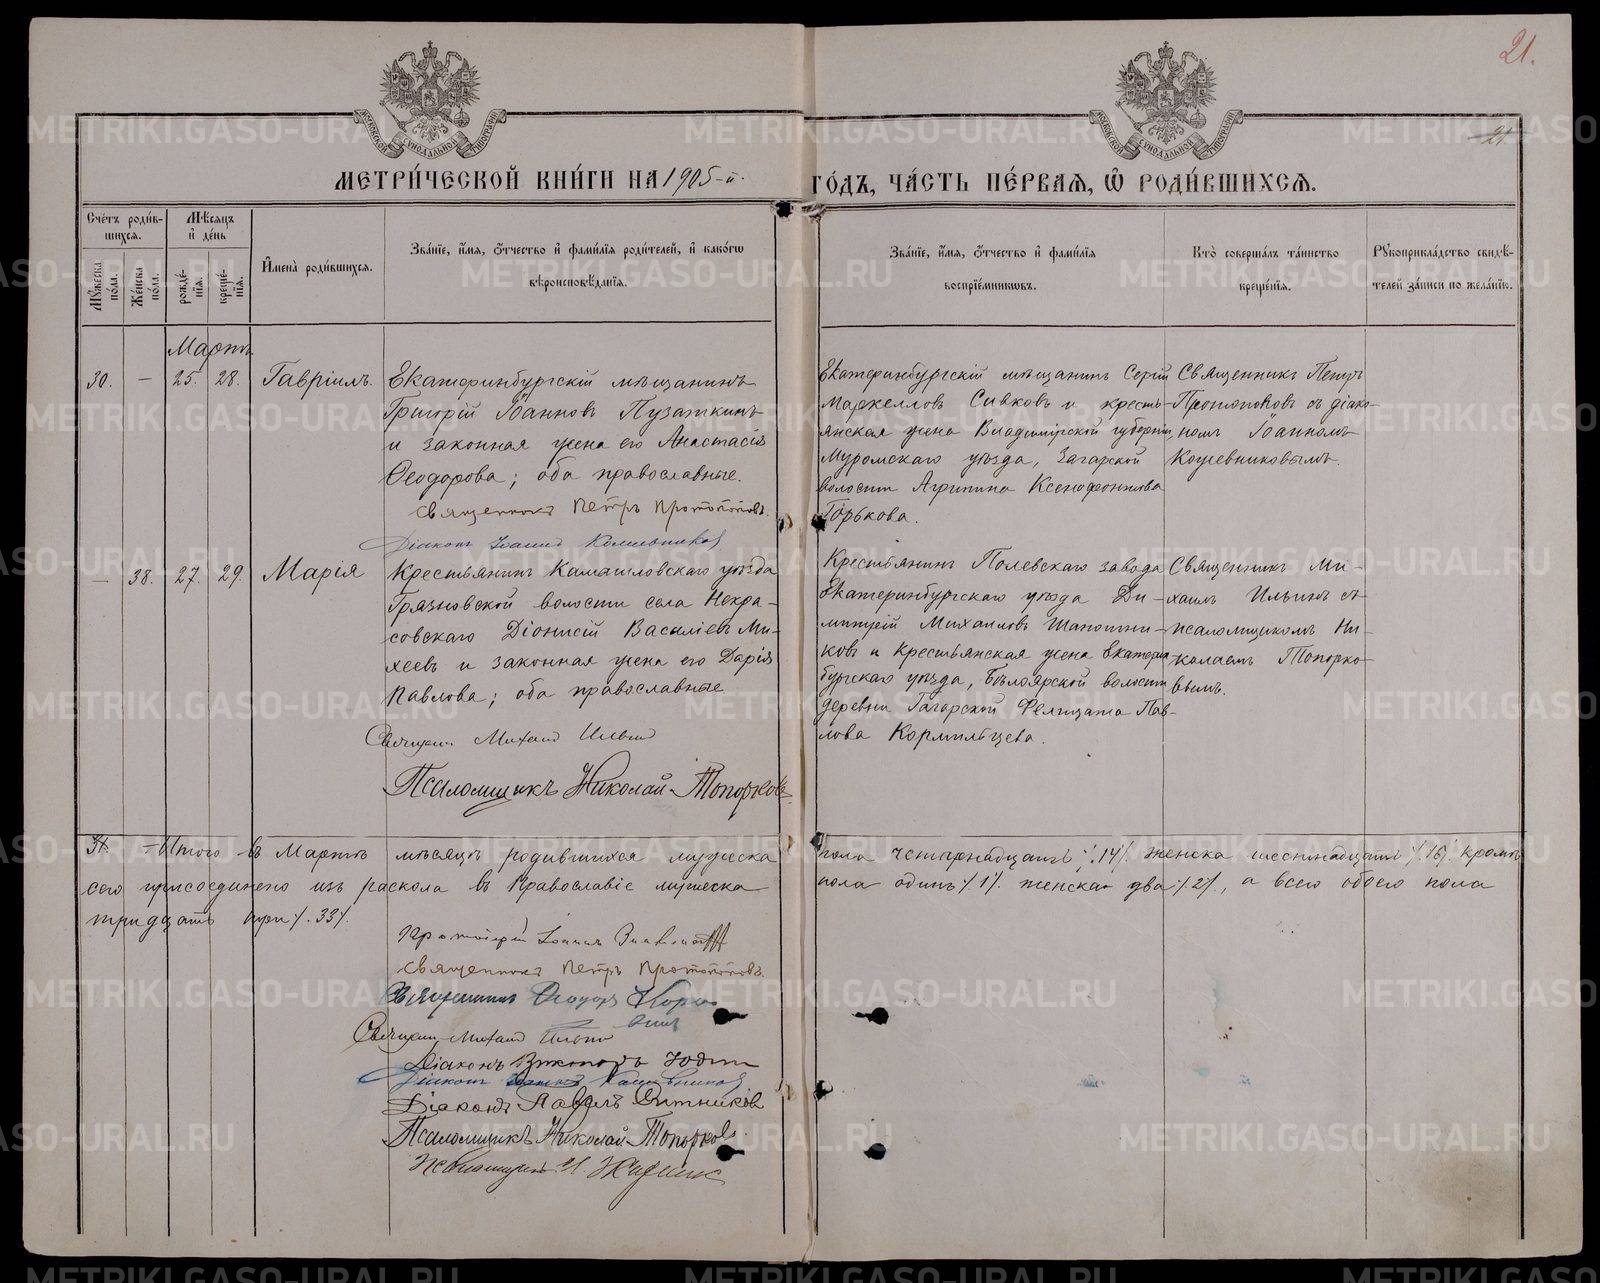 21.
21
МЕТРИ́ЧЕСКОЙ КНИ́ГИ НА 1905-й. ГО́ДЪ, ЧА́СТЬ ПЕ́РВАЯ, Ѽ РОДИ́ВШИХСЯ.
МОСКОВСКОЙ СѴНОДАЛЬНОЙ ТИПОГРАФІИ
МОСКОВСКОЙ СѴНОДАЛЬНОЙ ТИПОГРАФІИ
Сче́тъ роди́вшихся.
Мѹ́жеска по́ла.
Же́нска по́ла.
Мѣ́сяцъ и҆ де́нь
рожде́нія.
креще́нія.
И҆мена̀ роди́вшихся.
Зва́ніе, и҆́мя, ѻ҆́тчество и҆ фами́лія роди́телей, и҆ како́гѡ
вѣроисповѣ́данія.
Зва́ніе, и҆́мя, ѻ҆́тчество и҆ фами́лія
воспріе́мниковъ.
Кто̀ соверша́лъ та́инство
креще́нія.
Рѹкоприкла́дство свидѣ́-
телей за́писи по жела́нію.
Мартъ
30. — 25. 28. Гавріилъ.
Екатеринбургскій мѣщанинъ
Григорій Іоанновъ Пузаткинъ
и законная жена его Анастасія
Ѳеодорова; оба православные.
Священникъ Петръ Протопоповъ.
Діаконъ Іоаннъ Кожевниковъ
Екатеринбургскій мѣщанинъ Сергій
Маркелловъ Сивковъ и кресть-
янская жена Владимірской губерніи,
Муромскаго уѣзда, Загарской
волости Агрипина Ксенофонтова
Горькова.
Священникъ Петръ
Протопоповъ съ діако-
номъ Іоанномъ
Кожевниковымъ.
— 38. 27. 29. Марія
Крестьянинъ Камышловскаго уѣзда
Грязновской волости села Некра-
совскаго Діонисій Василіевъ Ми-
хеевъ и законная жена его Дарія
Павлова; оба православные
Священникъ Михаилъ Ильинъ
Псаломщикъ Николай Топорковъ.
Крестьянинъ Полевскаго завода
Екатеринбургскаго уѣзда Ди-
митрій Михаиловъ Шапошни-
ковъ и крестьянская жена Екатерин-
бургскаго уѣзда, Бѣлоярской волости
деревни Гагарской Фелицата Пав-
лова Кормильцева.
Священникъ Ми-
хаилъ Ильинъ съ
псаломщикомъ Ни-
колаемъ Топорко-
вымъ.
Итого въ Мартѣ мѣсяцѣ родившихся мужеска пола четырнадцать /.14/. женска шестнадцать /.16/. кромѣ
сего присоединено изъ раскола въ Православіе мужеска пола одинъ /.1/. женска два /.2/., а всего обоего пола
тридцать три /.33/.
Протоіерей Іоаннъ
Священникъ Петръ Протопоповъ.
Священникъ Ѳеодоръ
Священникъ Михаилъ Ильинъ
Діаконъ Викторъ Юдинъ
Діаконъ Іоаннъ Кожевниковъ
Діаконъ Павелъ Ситниковъ
Псаломщикъ Николай Топорковъ.
METRIKI.GASO-URAL.RU